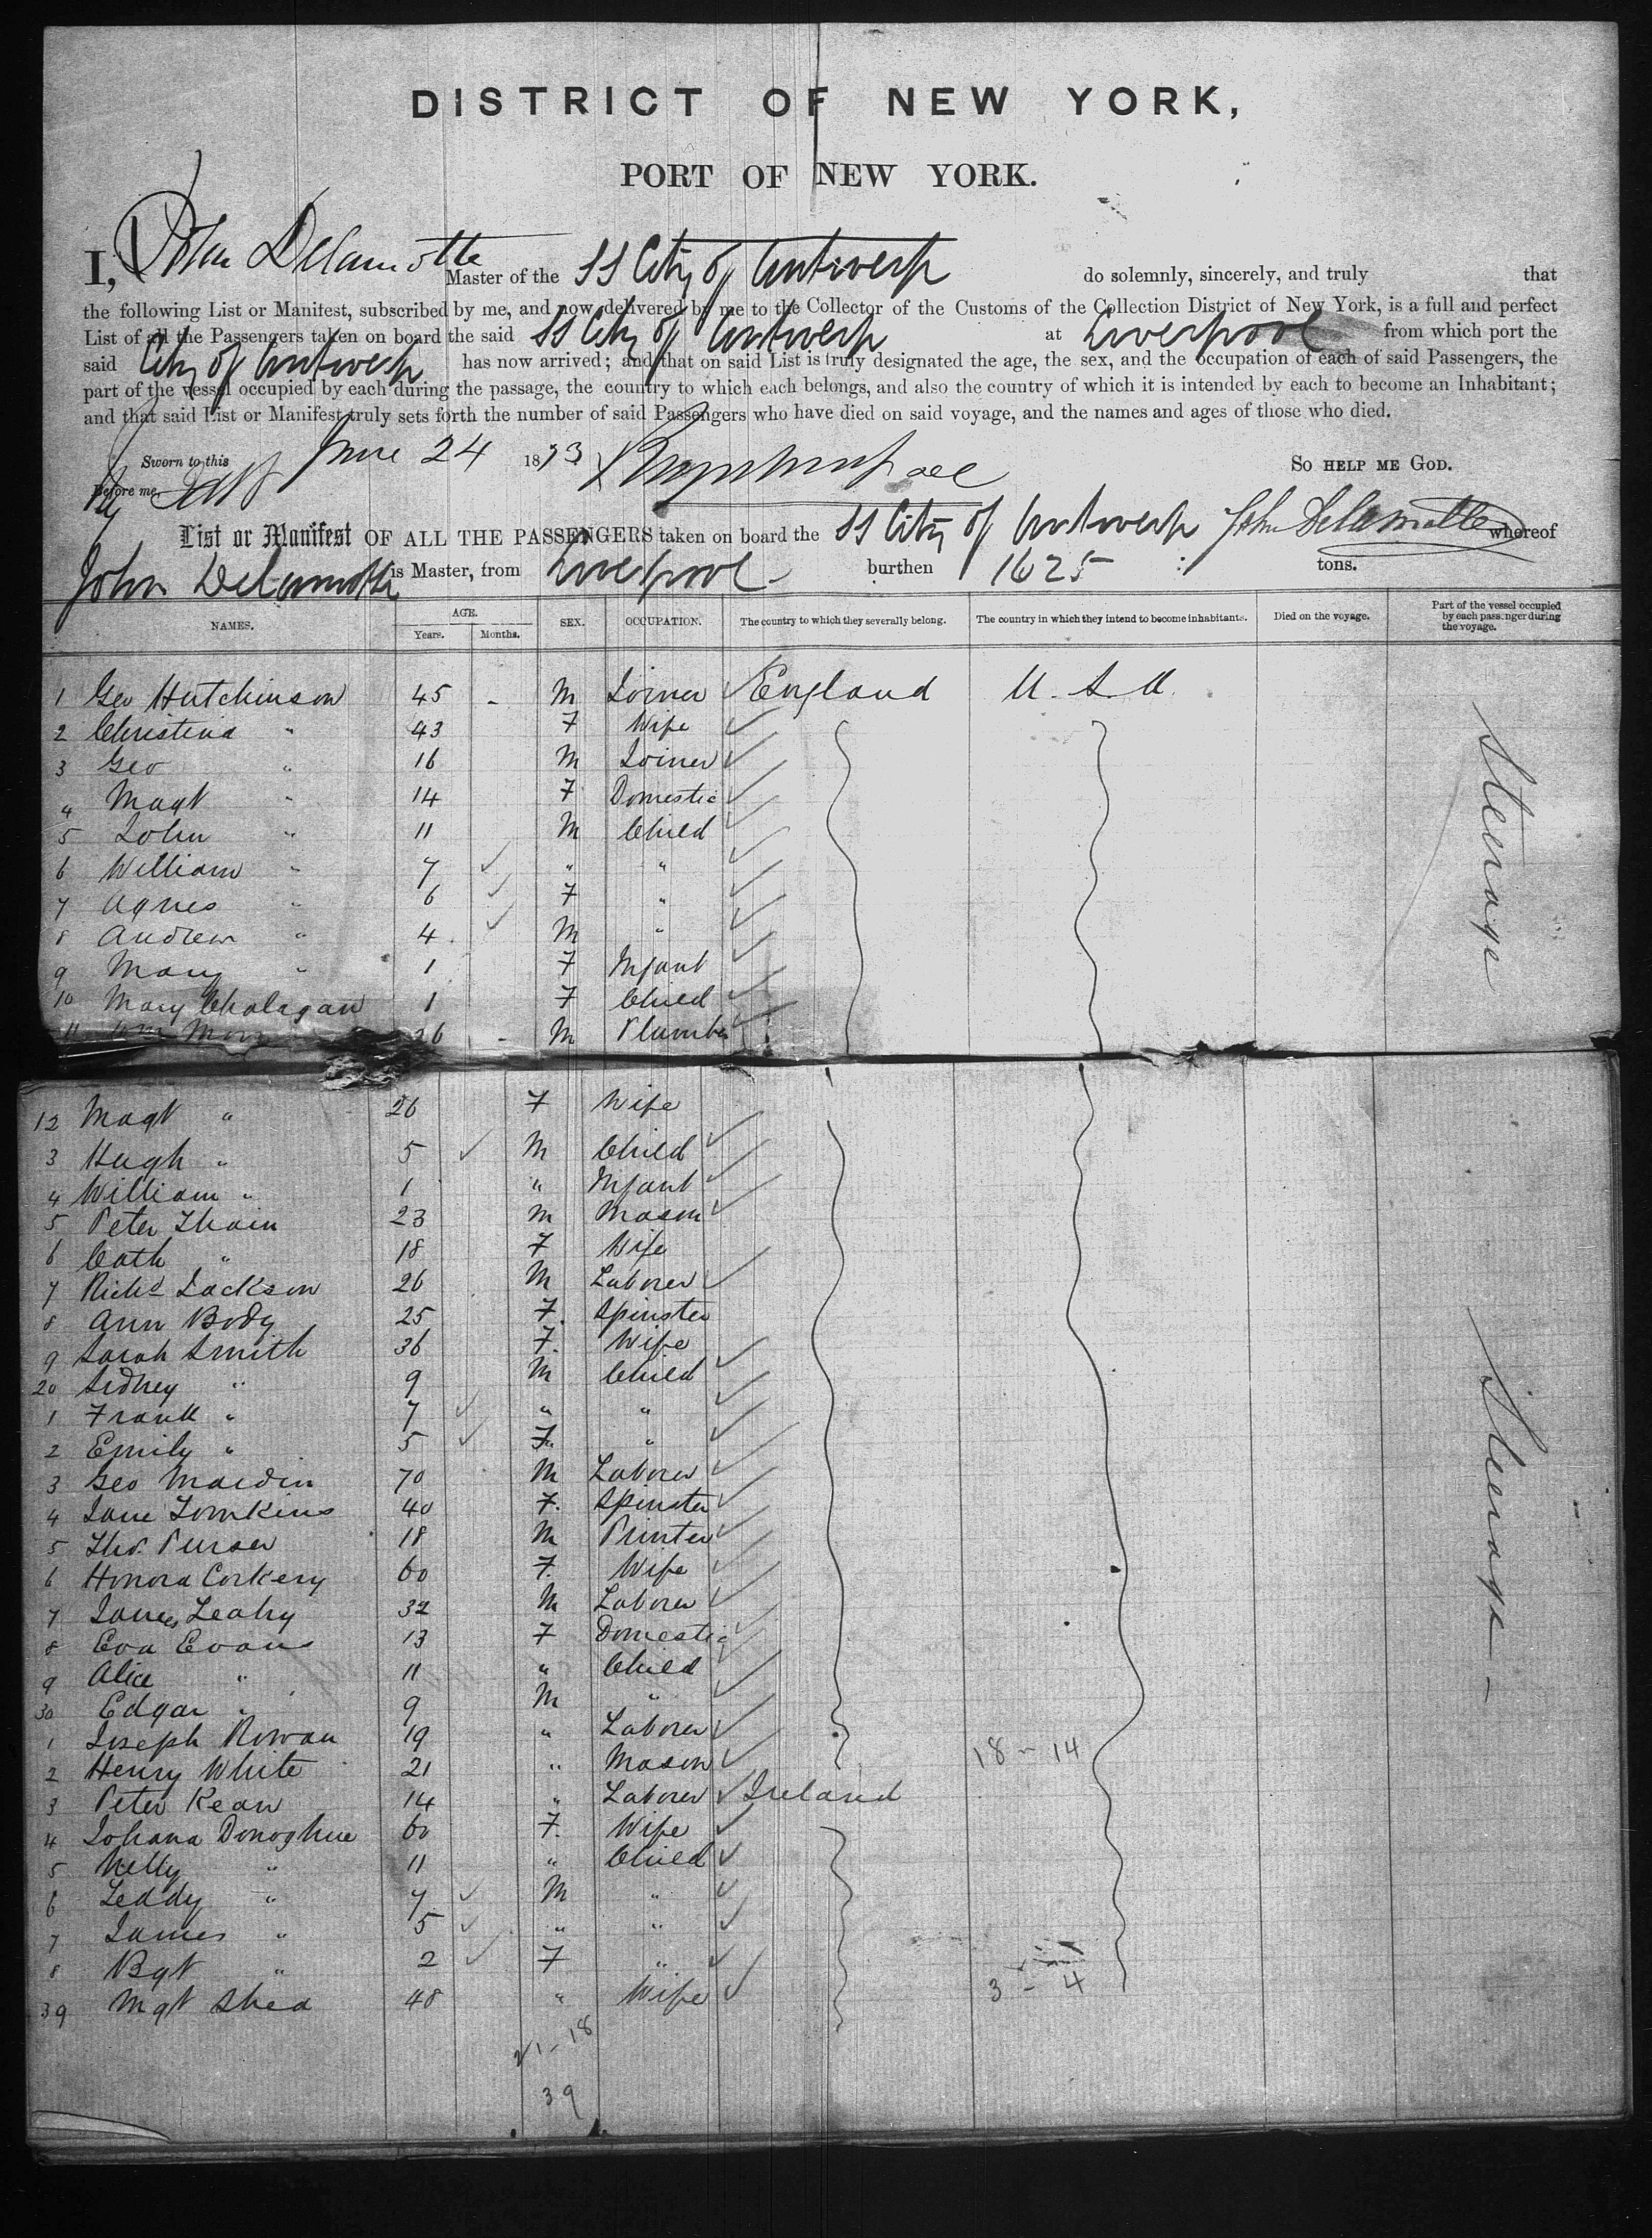 DISTRICT OF NEW YORK,
PORT OF NEW YORK.
I, John Delamotte Master of the SS City of Antwerp do solemnly, sincerely, and truly that
the following List or Manifest, subscribed by me, and now delivered by me to the Collector of the Customs of the Collection District of New York, is a full and perfect
List of all the Passengers taken on board the said SS City of Antwerp at Liverpool from which port the
said City of Antwerp has now arrived; and that on said List is truly designated the age, the sex, and the occupation of each of said Passengers, the
part of the vessel occupied by each during the passage, the country to which each belongs, and also the country of which it is intended by each to become an Inhabitant;
and that said List or Manifest truly sets forth the number of said Passengers who have died on said voyage, and the names and ages of those who died.
Sworn to this June 24 1873 So HELP ME GOD.
Before me,
List or Manifest OF ALL THE PASSENGERS taken on board the SS City of Antwerp John Delamotte whereof
John Delamotte is Master, from Liverpool - burthen 1625 tons.
NAMES. AGE. Years. Months. SEX. OCCUPATION. The country to which they severally belong. The country in which they intend to become inhabitants. Died on the voyage. Part of the vessel occupied by each passenger during the voyage.
1 Geo Hutchinson 45 - M Joiner England U.S.A.
2 Christina " 43 F Wife
3 Geo " 16 M Joiner
4 Magt " 14 F Domestic
5 John " 11 M Child
6 William " 7 " "
7 Agnes " 6 F "
8 Andrew " 4 M "
9 Mary " 1 F Infant
10 Mary 1 F Child
11 M Plumber
Steerage
12 Magt " 26 F Wife
3 Hugh " 5 M Child
4 William " 1 " Infant
5 Peter Thain 23 M Mason
6 Cath " 18 F Wife
7 Richd Jackson 26 M Laborer
8 Ann Body 25 F Spinster
9 Sarah Smith 36 F Wife
20 Sidney " 9 M Child
1 Frank " 7 " "
2 Emily " 5 F "
3 Geo Mardin 70 M Laborer
4 Jane Tomkins 40 F Spinster
5 Tho. Purser 18 M Printer
6 Honora Corkery 60 F Wife
7 James Leahy 32 M Laborer
8 Eva Evans 13 F Domestic
9 Alice " 11 " Child
30 Edgar " 9 M "
1 Joseph Rowan 19 " Laborer
2 Henry White 21 " Mason 18 - 14
3 Peter Kean 14 " Laborer Ireland
4 Johana Donoghue 60 F Wife
5 Nelly " 11 " Child
6 Teddy " 7 M "
7 James " 5 " "
8 Bgt " 2 F "
39 Mgt Shea 48 " Wife 3 - 4
Steerage -
21 - 18
39